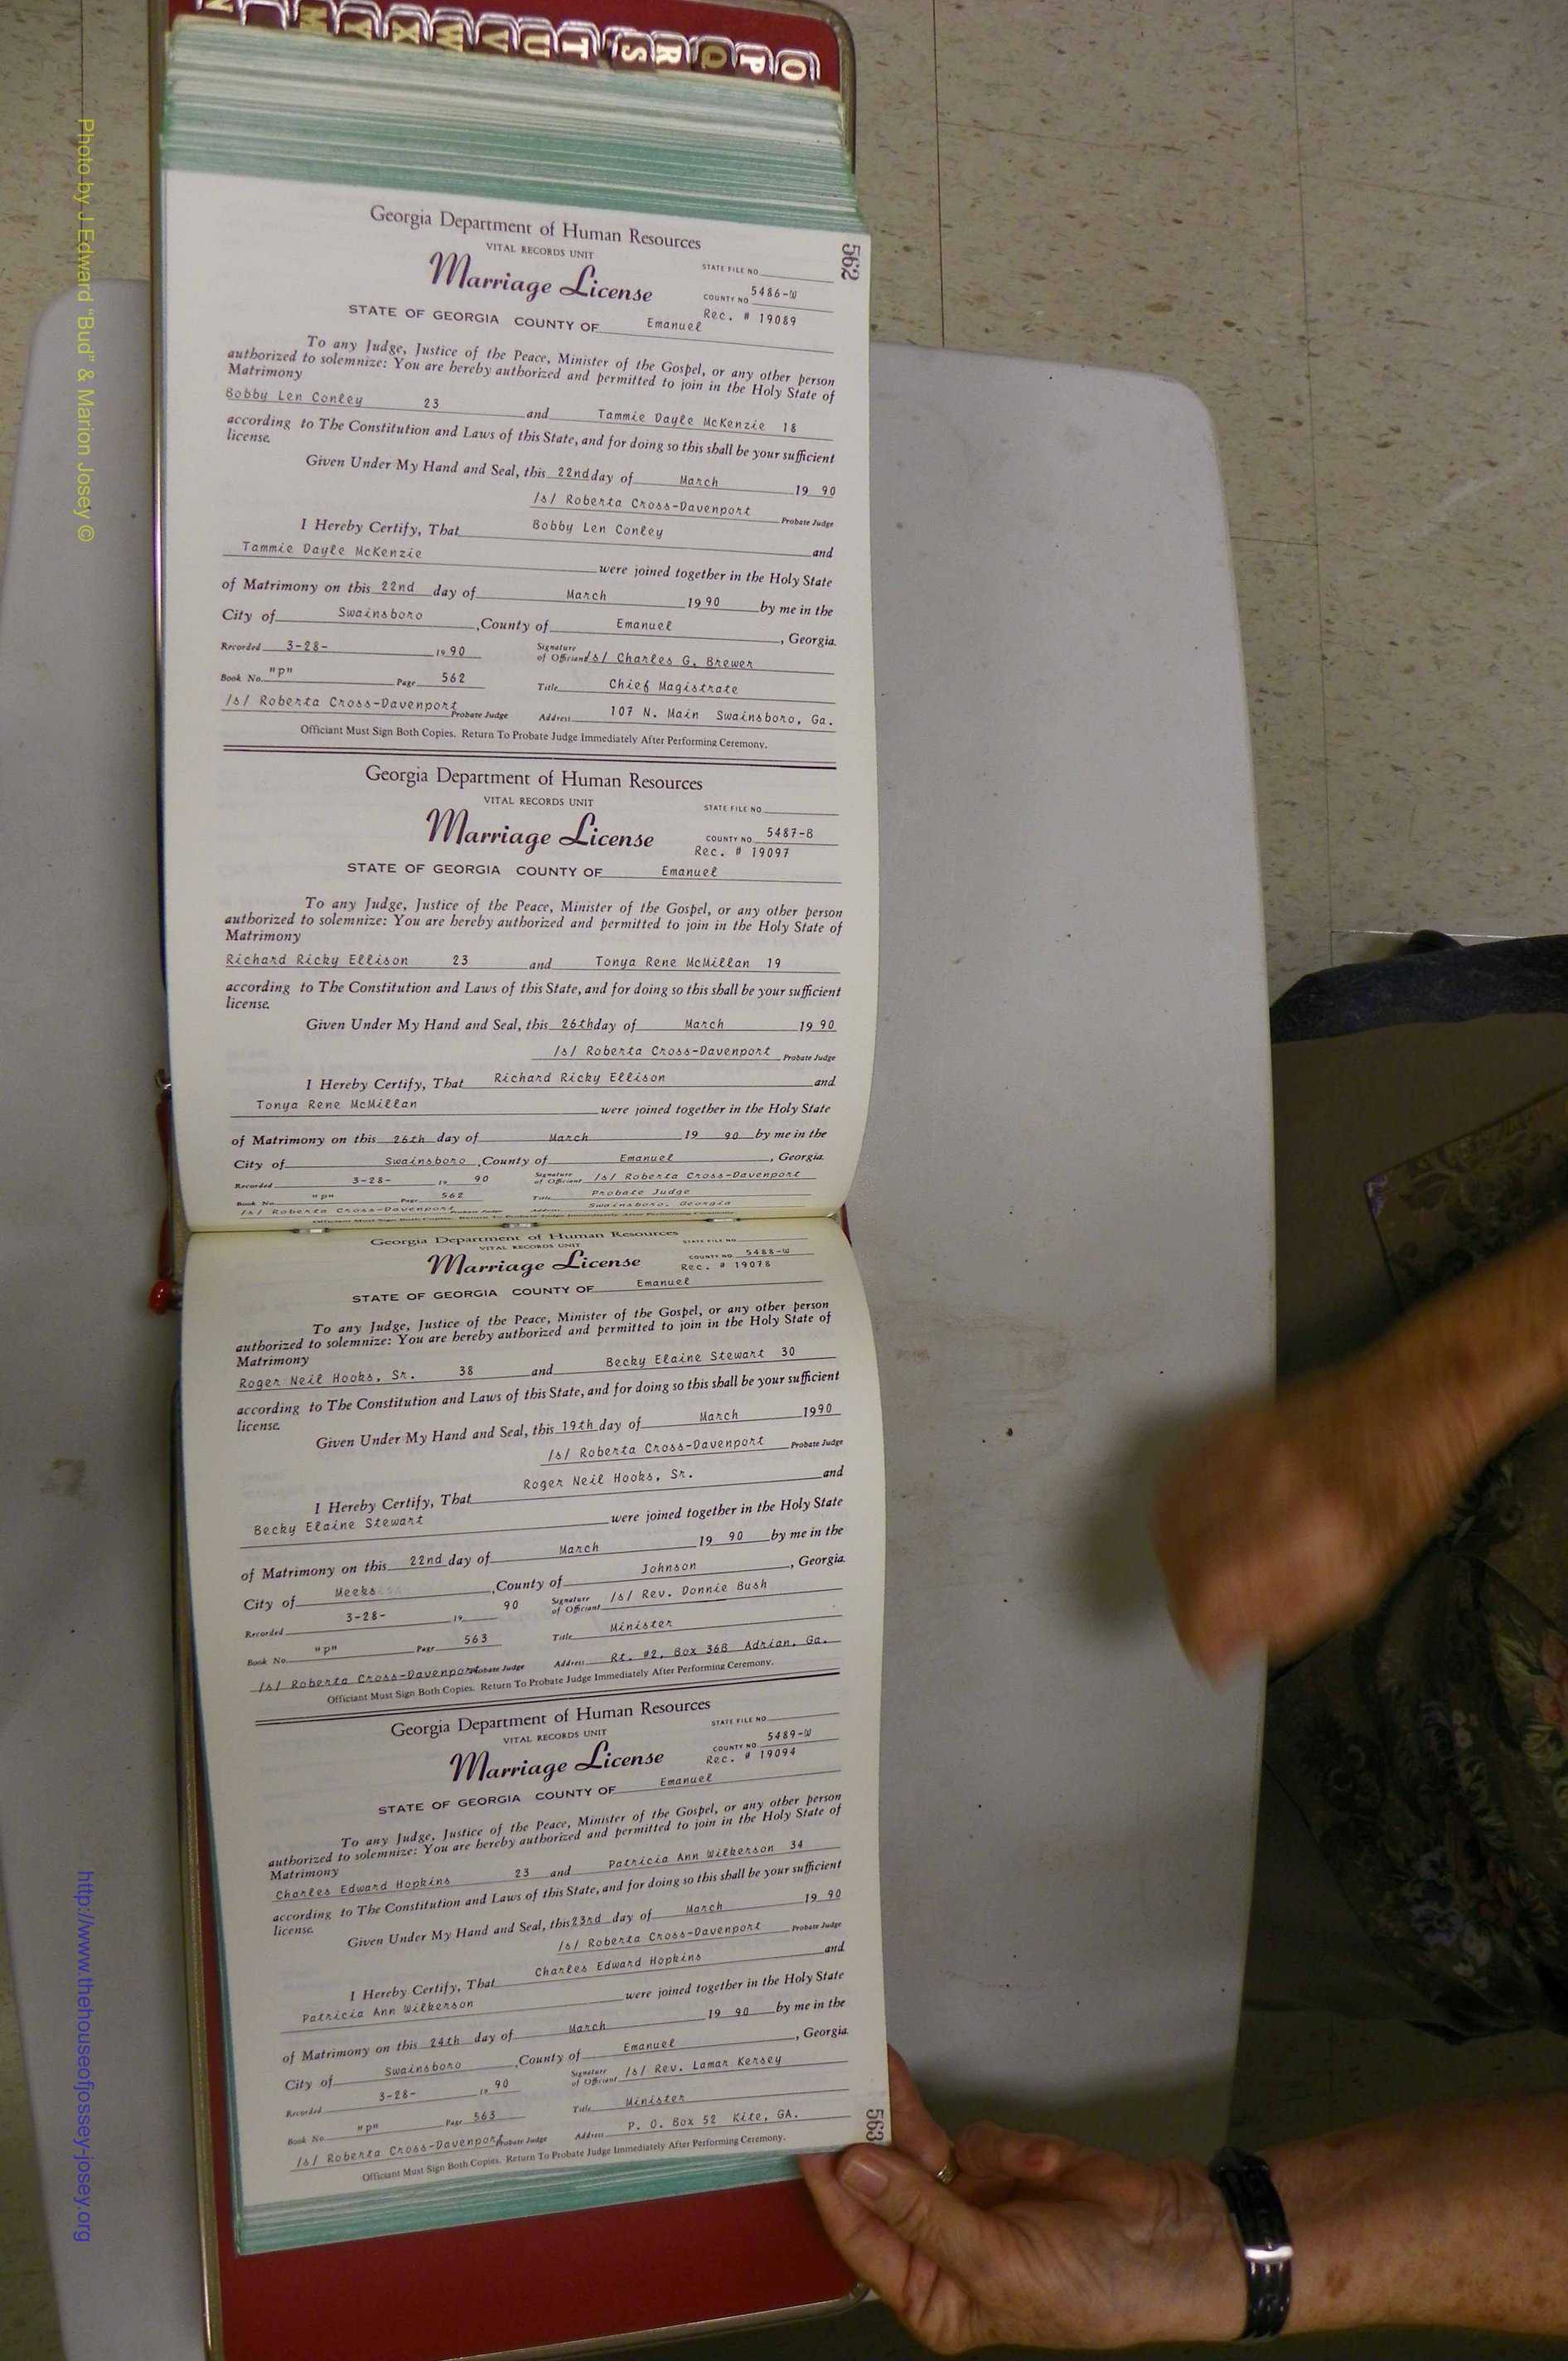 N M Y X W V U T S R Q P O
562
Georgia Department of Human Resources
VITAL RECORDS UNIT
STATE FILE NO.
Marriage License
COUNTY NO. 5486-W
Rec. # 19089
STATE OF GEORGIA COUNTY OF Emanuel
To any Judge, Justice of the Peace, Minister of the Gospel, or any other person
authorized to solemnize: You are hereby authorized and permitted to join in the Holy State of
Matrimony
Bobby Len Conley 23 and Tammie Dayle McKenzie 18
according to The Constitution and Laws of this State, and for doing so this shall be your sufficient
license.
Given Under My Hand and Seal, this 22nd day of March 19 90
/s/ Roberta Cross-Davenport Probate Judge
I Hereby Certify, That Bobby Len Conley and
Tammie Dayle McKenzie were joined together in the Holy State
of Matrimony on this 22nd day of March 19 90 by me in the
City of Swainsboro, County of Emanuel, Georgia.
Recorded 3-28- 19 90 Signature of Officiant /s/ Charles G. Brewer
Book No. "P" Page 562 Title Chief Magistrate
/s/ Roberta Cross-Davenport Probate Judge Address 107 N. Main Swainsboro, Ga.
Officiant Must Sign Both Copies. Return To Probate Judge Immediately After Performing Ceremony.
Georgia Department of Human Resources
VITAL RECORDS UNIT
STATE FILE NO.
Marriage License
COUNTY NO. 5487-B
Rec. # 19097
STATE OF GEORGIA COUNTY OF Emanuel
To any Judge, Justice of the Peace, Minister of the Gospel, or any other person
authorized to solemnize: You are hereby authorized and permitted to join in the Holy State of
Matrimony
Richard Ricky Ellison 23 and Tonya Rene McMillan 19
according to The Constitution and Laws of this State, and for doing so this shall be your sufficient
license.
Given Under My Hand and Seal, this 26th day of March 19 90
/s/ Roberta Cross-Davenport Probate Judge
I Hereby Certify, That Richard Ricky Ellison and
Tonya Rene McMillan were joined together in the Holy State
of Matrimony on this 26th day of March 19 90 by me in the
City of Swainsboro, County of Emanuel, Georgia.
Recorded 3-28- 19 90 Signature of Officiant /s/ Roberta Cross-Davenport
Book No. "P" Page 562 Title Probate Judge
/s/ Roberta Cross-Davenport Probate Judge Address Swainsboro, Georgia
Officiant Must Sign Both Copies. Return To Probate Judge Immediately After Performing Ceremony.
Georgia Department of Human Resources
VITAL RECORDS UNIT
STATE FILE NO.
Marriage License
COUNTY NO. 5488-W
Rec. # 19078
STATE OF GEORGIA COUNTY OF Emanuel
To any Judge, Justice of the Peace, Minister of the Gospel, or any other person
authorized to solemnize: You are hereby authorized and permitted to join in the Holy State of
Matrimony
Roger Neil Hooks, Sr. 38 and Becky Elaine Stewart 30
according to The Constitution and Laws of this State, and for doing so this shall be your sufficient
license.
Given Under My Hand and Seal, this 19th day of March 1990
/s/ Roberta Cross-Davenport Probate Judge
I Hereby Certify, That Roger Neil Hooks, Sr. and
Becky Elaine Stewart were joined together in the Holy State
of Matrimony on this 22nd day of March 19 90 by me in the
City of Meeks, County of Johnson, Georgia.
Recorded 3-28- 19 90 Signature of Officiant /s/ Rev. Donnie Bush
Book No. "P" Page 563 Title Minister
/s/ Roberta Cross-Davenport Probate Judge Address Rt. #2, Box 36B Adrian, Ga.
Officiant Must Sign Both Copies. Return To Probate Judge Immediately After Performing Ceremony.
Georgia Department of Human Resources
VITAL RECORDS UNIT
STATE FILE NO.
Marriage License
COUNTY NO. 5489-W
Rec. # 19094
STATE OF GEORGIA COUNTY OF Emanuel
To any Judge, Justice of the Peace, Minister of the Gospel, or any other person
authorized to solemnize: You are hereby authorized and permitted to join in the Holy State of
Matrimony
Charles Edward Hopkins 23 and Patricia Ann Wilkerson 34
according to The Constitution and Laws of this State, and for doing so this shall be your sufficient
license.
Given Under My Hand and Seal, this 23rd day of March 19 90
/s/ Roberta Cross-Davenport Probate Judge
I Hereby Certify, That Charles Edward Hopkins and
Patricia Ann Wilkerson were joined together in the Holy State
of Matrimony on this 24th day of March 19 90 by me in the
City of Swainsboro, County of Emanuel, Georgia.
Recorded 3-28- 19 90 Signature of Officiant /s/ Rev. Lamar Kersey
Book No. "P" Page 563 Title Minister
/s/ Roberta Cross-Davenport Probate Judge Address P. O. Box 52 Kite, GA.
Officiant Must Sign Both Copies. Return To Probate Judge Immediately After Performing Ceremony.
563
Photo by J Edward "Bud" & Marion Josey ©
http://www.thehouseofjossey-josey.org